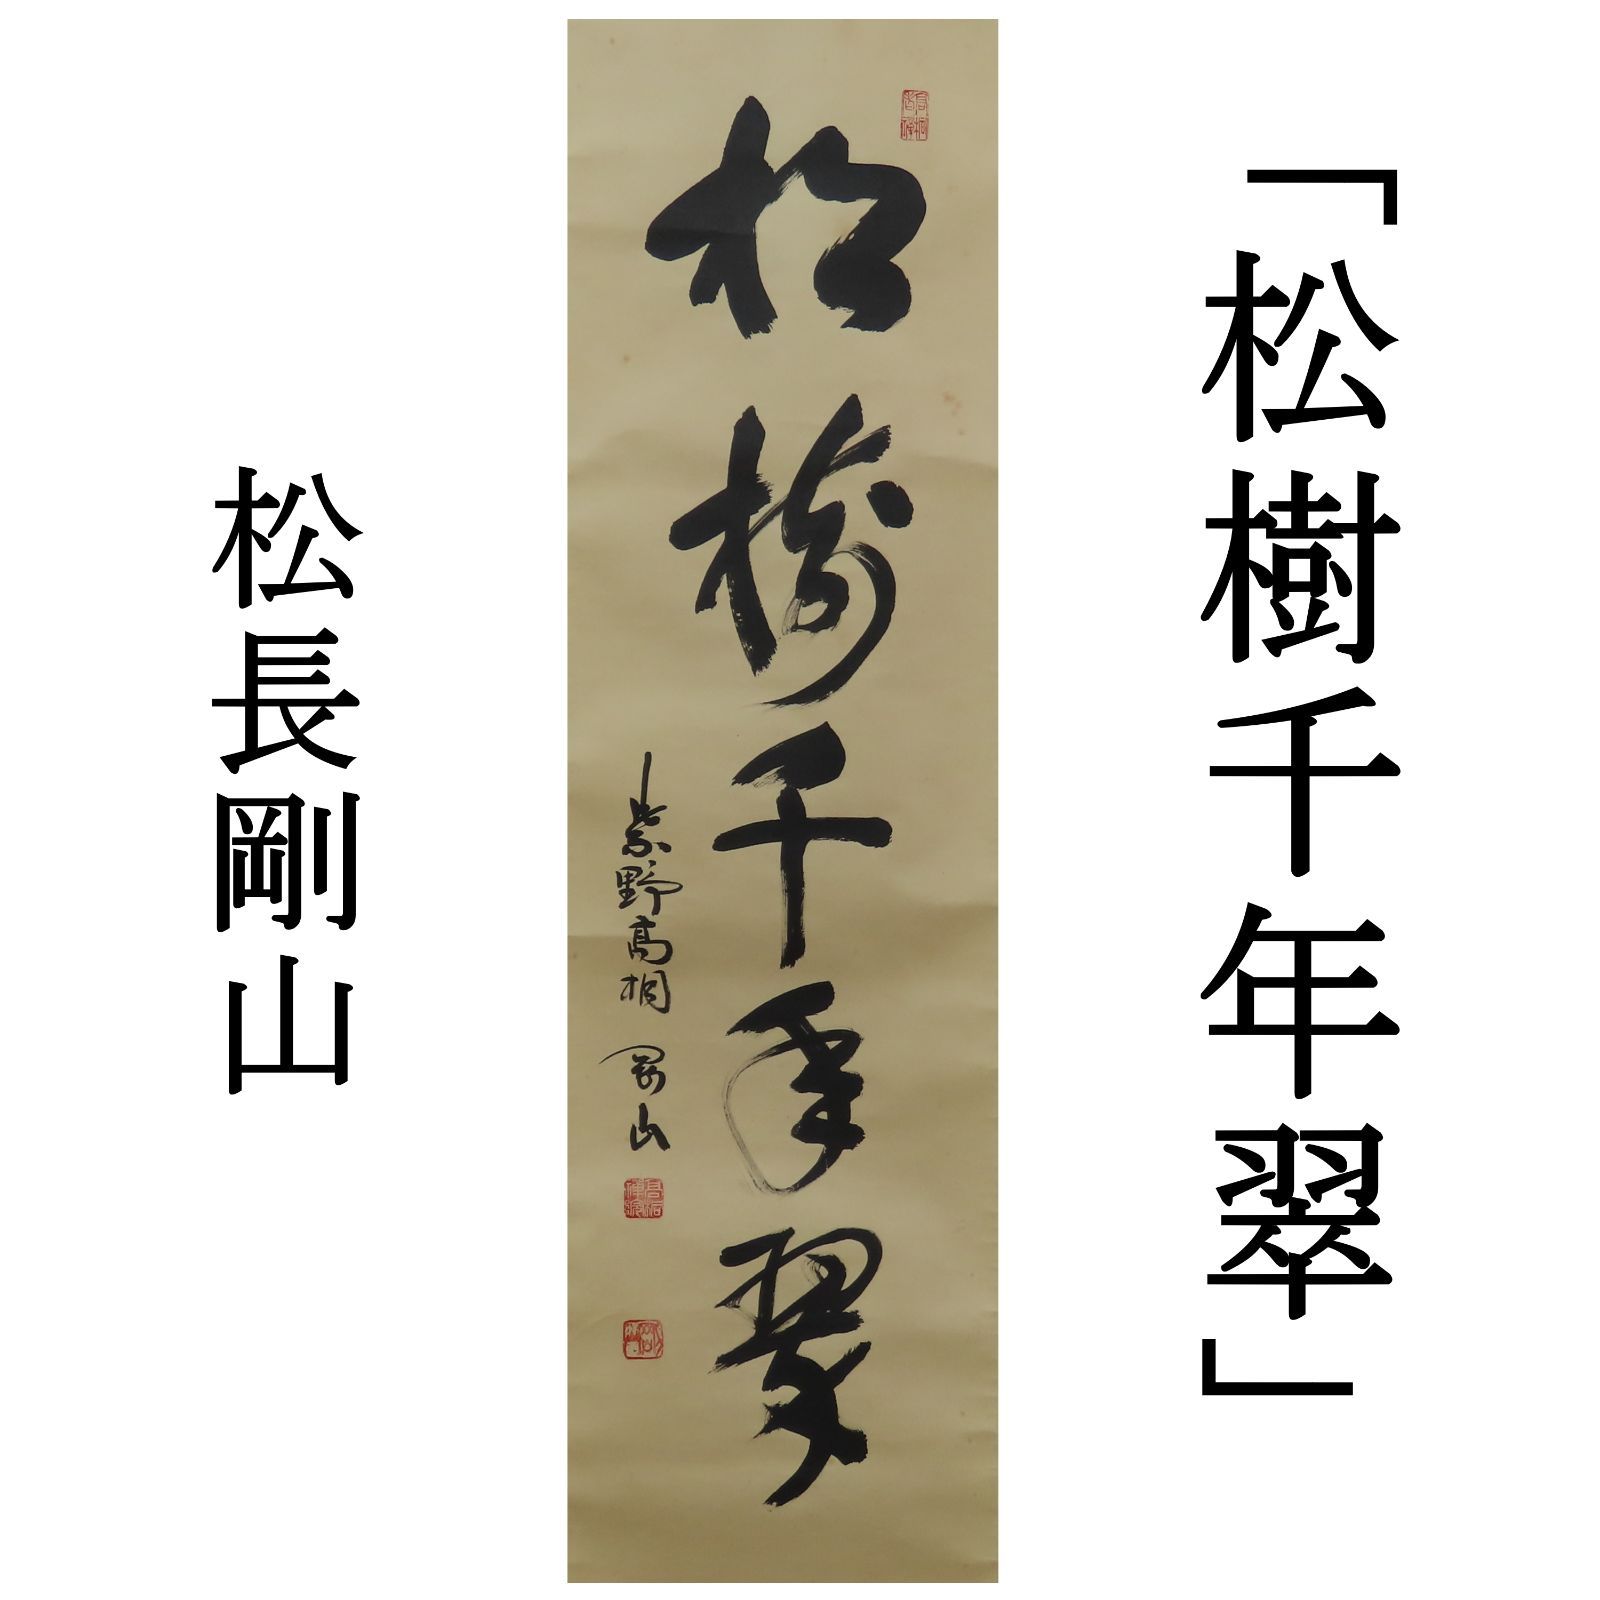 「松樹千年翠」
松樹千年翠
紫野高桐 剛山
松長剛山